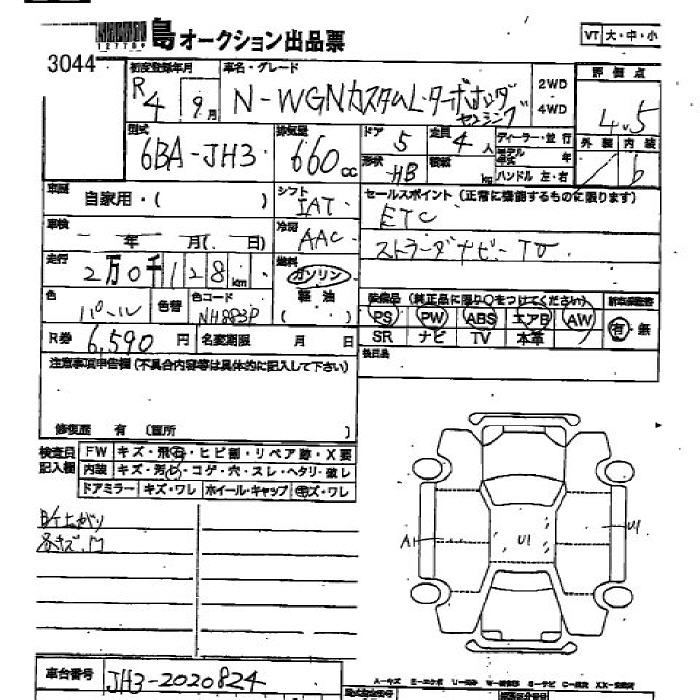 127709
島オークション出品票
VT 大・中・小
3044
初度登録年月 車名・グレード 評価点
R4 9月 N-WGNカスタムL・ターボホンダセンシング 2WD 4WD 4.5
型式 排気量 ドア 定員 ディーラー・並行 外装 内装
6BA-JH3 660cc 5 4人 モデル年式 年 b
形状 HB 積載 kg ハンドル 左・右
車歴 自家用・( ) シフト IAT セールスポイント(正常に機能するものに限ります)
ETC
車検 年 月( 日) 冷房 AAC ストラーダナビーTV
走行 2万0千128km 燃料 ガソリン
軽油
( )
色 パール 色替 色コード NH883P
装備品(純正品に限り○をつけてください)
PS PW ABS エアB AW 有・無
SR ナビ TV 本革
R券 6,590円 名変期限 月 日
後日品
注意事項申告欄(不具合内容等は具体的に記入して下さい)
修復歴 有 (箇所 )
検査員記入欄 FW キズ・飛石・ヒビ割・リペア跡・X要
内装 キズ・汚れ・コゲ・穴・スレ・ヘタリ・破レ
ドアミラー キズ・ワレ ホイール・キャップ キズ・ワレ
各キズ凹
A1 U1 U1
車台番号 JH3-2020824